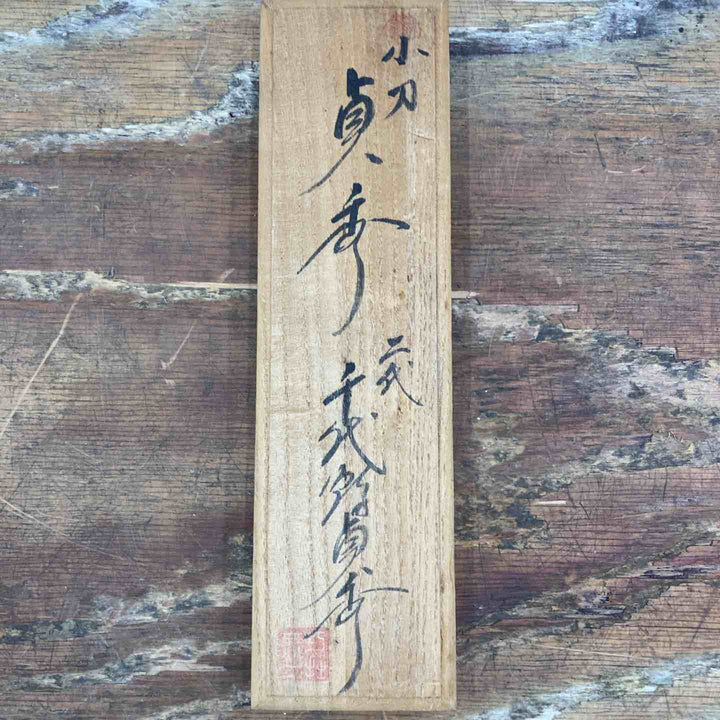 小刀
貞秀
二代
千代鶴貞秀